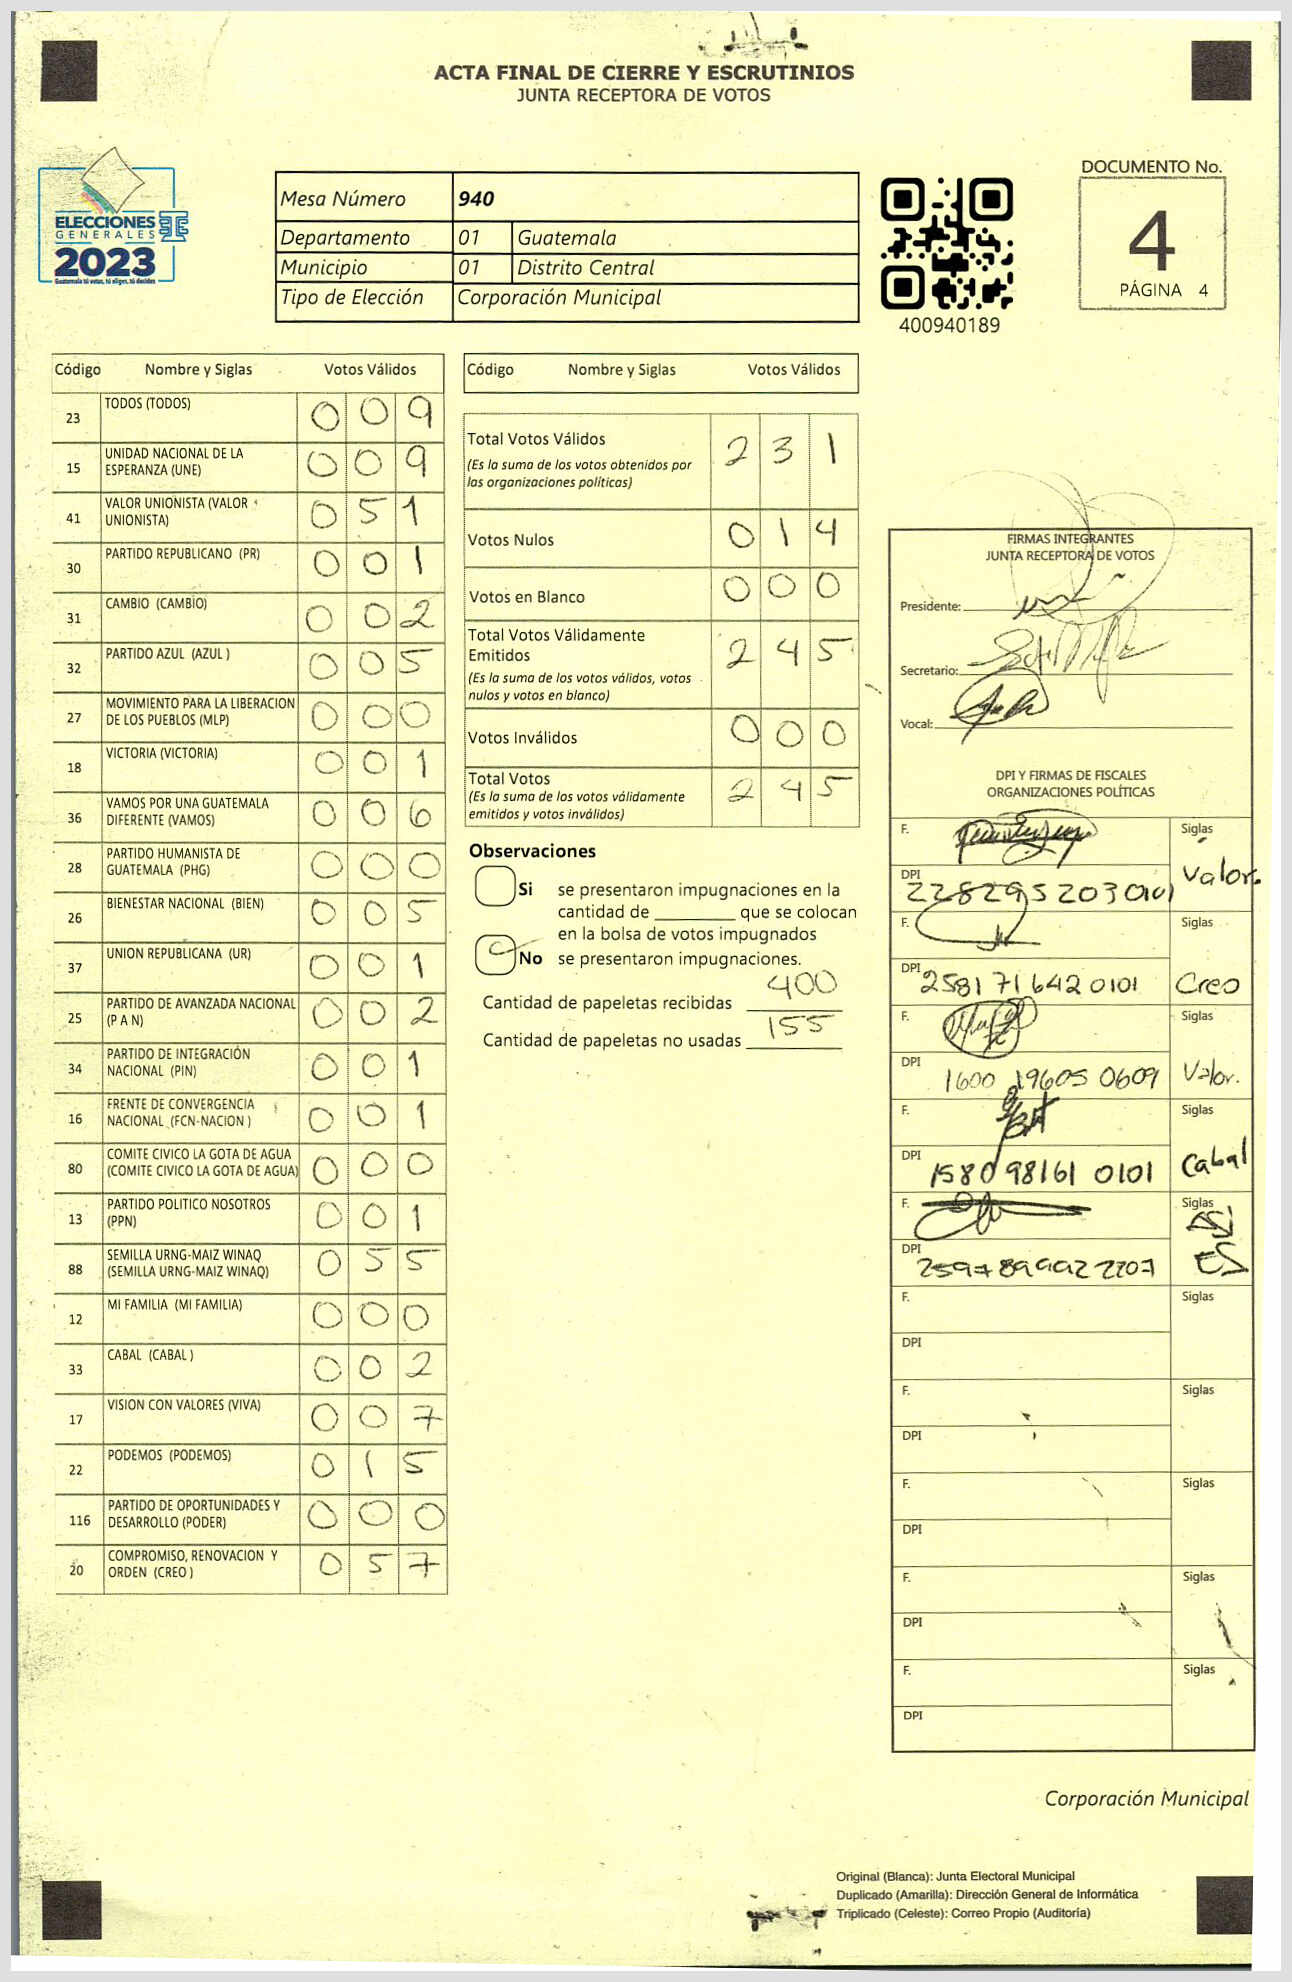 ACTA FINAL DE CIERRE Y ESCRUTINIOS
JUNTA RECEPTORA DE VOTOS
ELECCIONES
GENERALES
2023
Guatemala tú votas, tú eliges, tú decides
Mesa Número 940
Departamento 01 Guatemala
Municipio 01 Distrito Central
Tipo de Elección Corporación Municipal
400940189
DOCUMENTO No.
4
PÁGINA 4
Código Nombre y Siglas Votos Válidos
23 TODOS (TODOS) 0 0 9
15 UNIDAD NACIONAL DE LA ESPERANZA (UNE) 0 0 9
41 VALOR UNIONISTA (VALOR UNIONISTA) 0 5 1
30 PARTIDO REPUBLICANO (PR) 0 0 1
31 CAMBIO (CAMBIO) 0 0 2
32 PARTIDO AZUL (AZUL ) 0 0 5
27 MOVIMIENTO PARA LA LIBERACION DE LOS PUEBLOS (MLP) 0 0 0
18 VICTORIA (VICTORIA) 0 0 1
36 VAMOS POR UNA GUATEMALA DIFERENTE (VAMOS) 0 0 6
28 PARTIDO HUMANISTA DE GUATEMALA (PHG) 0 0 0
26 BIENESTAR NACIONAL (BIEN) 0 0 5
37 UNION REPUBLICANA (UR) 0 0 1
25 PARTIDO DE AVANZADA NACIONAL (P A N) 0 0 2
34 PARTIDO DE INTEGRACIÓN NACIONAL (PIN) 0 0 1
16 FRENTE DE CONVERGENCIA NACIONAL (FCN-NACION ) 0 0 1
80 COMITE CIVICO LA GOTA DE AGUA (COMITE CIVICO LA GOTA DE AGUA) 0 0 0
13 PARTIDO POLITICO NOSOTROS (PPN) 0 0 1
88 SEMILLA URNG-MAIZ WINAQ (SEMILLA URNG-MAIZ WINAQ) 0 5 5
12 MI FAMILIA (MI FAMILIA) 0 0 0
33 CABAL (CABAL ) 0 0 2
17 VISION CON VALORES (VIVA) 0 0 7
22 PODEMOS (PODEMOS) 0 1 5
116 PARTIDO DE OPORTUNIDADES Y DESARROLLO (PODER) 0 0 0
20 COMPROMISO, RENOVACION Y ORDEN (CREO ) 0 5 7
Código Nombre y Siglas Votos Válidos
Total Votos Válidos 2 3 1
(Es la suma de los votos obtenidos por
las organizaciones políticas)
Votos Nulos 0 1 4
Votos en Blanco 0 0 0
Total Votos Válidamente
Emitidos 2 4 5
(Es la suma de los votos válidos, votos
nulos y votos en blanco)
Votos Inválidos 0 0 0
Total Votos 2 4 5
(Es la suma de los votos válidamente
emitidos y votos inválidos)
Observaciones
Si se presentaron impugnaciones en la
cantidad de ________ que se colocan
en la bolsa de votos impugnados
No se presentaron impugnaciones.
Cantidad de papeletas recibidas 400
Cantidad de papeletas no usadas 155
FIRMAS INTEGRANTES
JUNTA RECEPTORA DE VOTOS
Presidente:
Secretario:
Vocal:
DPI Y FIRMAS DE FISCALES
ORGANIZACIONES POLÍTICAS
F. Siglas
DPI 2282952030101 Valor.
F. Siglas
DPI 2581 71642 0101 Creo
F. Siglas
DPI 1600 19605 0609 Valor.
F. Siglas
DPI 1580 98161 0101 Cabal
F. Siglas
DPI
F. Siglas
DPI
F. Siglas
DPI
F. Siglas
DPI
F. Siglas
DPI
F. Siglas
DPI
Corporación Municipal
Original (Blanca): Junta Electoral Municipal
Duplicado (Amarilla): Dirección General de Informática
Triplicado (Celeste): Correo Propio (Auditoría)